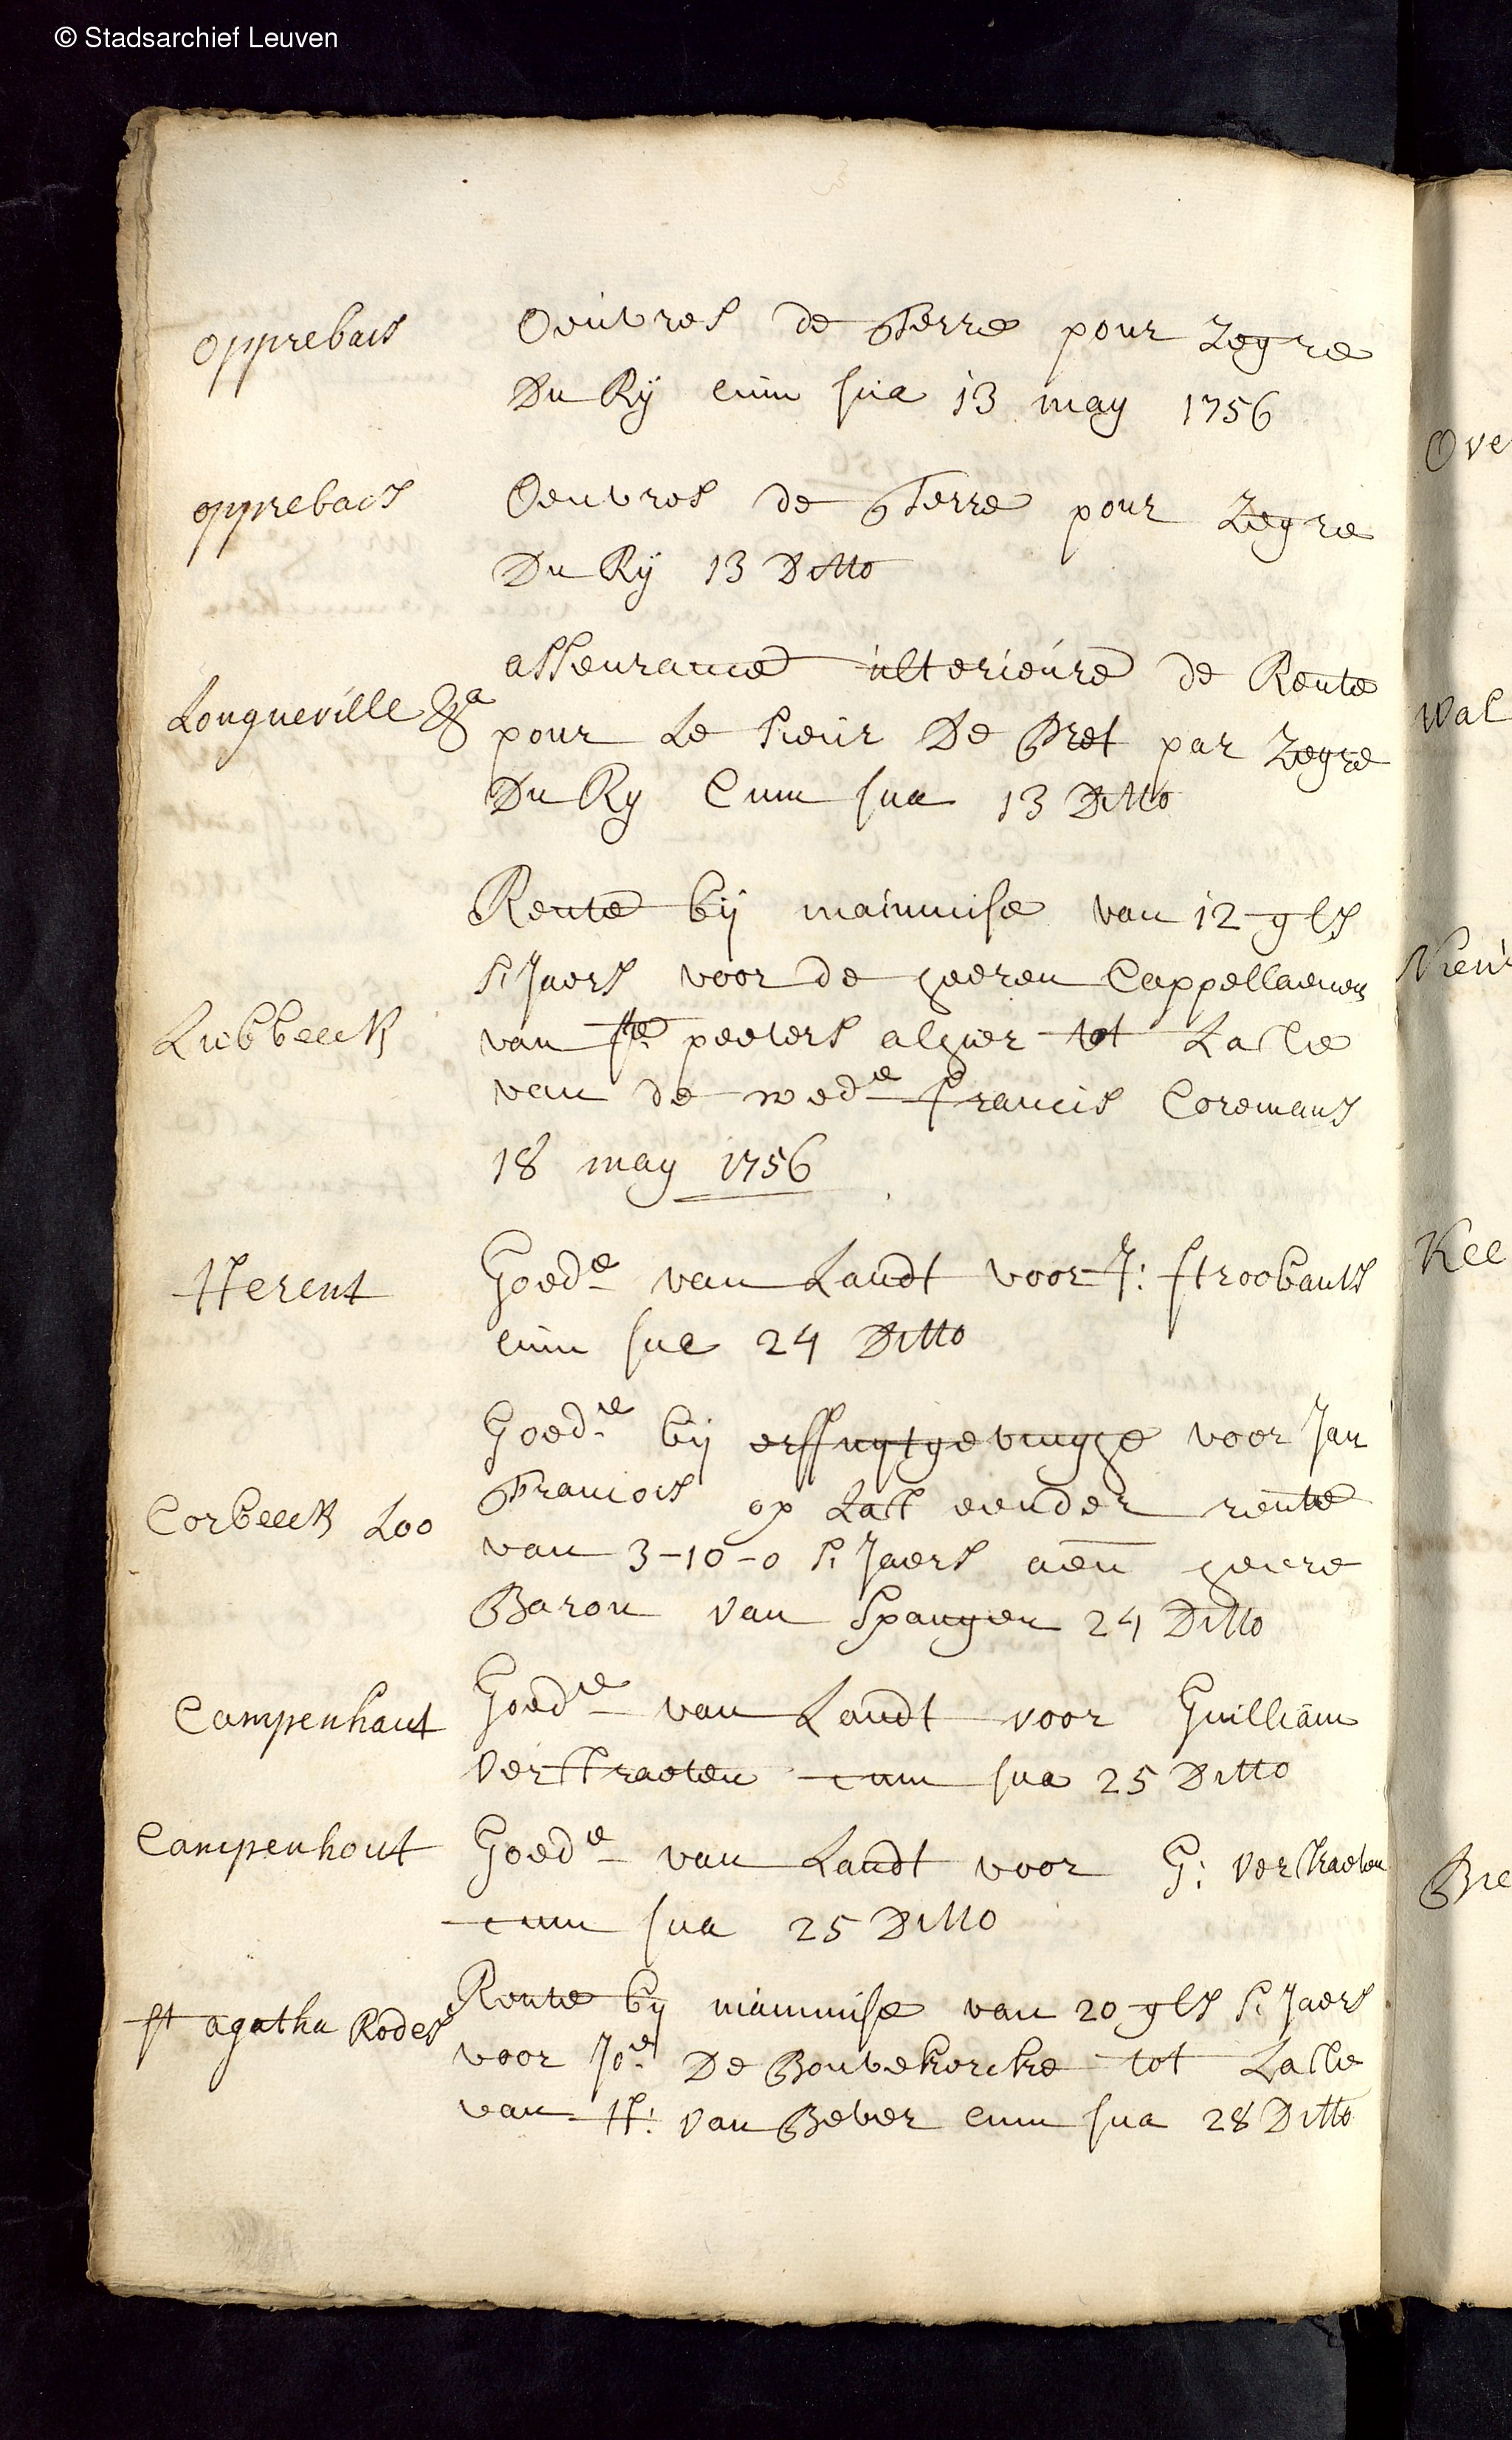 © Stadsarchief Leuven
opprebais
Oeuvres de Terre pour Zegre
Du Rÿ cum sua 13 may 1756
opprebais
Oeuvres de Terre pour Zegre
Du Rÿ 13 Ditto
Longueville &a
asseurance ulterieure de Rente
pour Le sieur De Pret par Zegre
Du Ry Cum sua 13 Ditto
Lubbeeck
Rente bij mainmise van 12 gls
sJaers voor de heeren Cappellaenen
van ste peeters alhier tot Laste
van de wede Francis Coremans
18 may 1756
Herent
Goede van Landt voor J: stroobants
cum sua 24 Ditto
Corbeeck Loo
Goede bij erffuytgevinghe voor Jan
Francois op Last eender rente
van 3-10-0 sJaers aen heere
Baron van Spangen 24 Ditto
Campenhaut
Goede van Landt voor Guilliam
Verstraeten cum sua 25 Ditto
Campenhout
Goede van Landt voor G: Verstraeten
cum sua 25 Ditto
st agatha Rodes
Rente bij mainmise van 20 gls sJaers
voor Joe De Bouvekercke tot Laste
van H: van Bever cum sua 28 Ditto
Ove
Wal
Kee